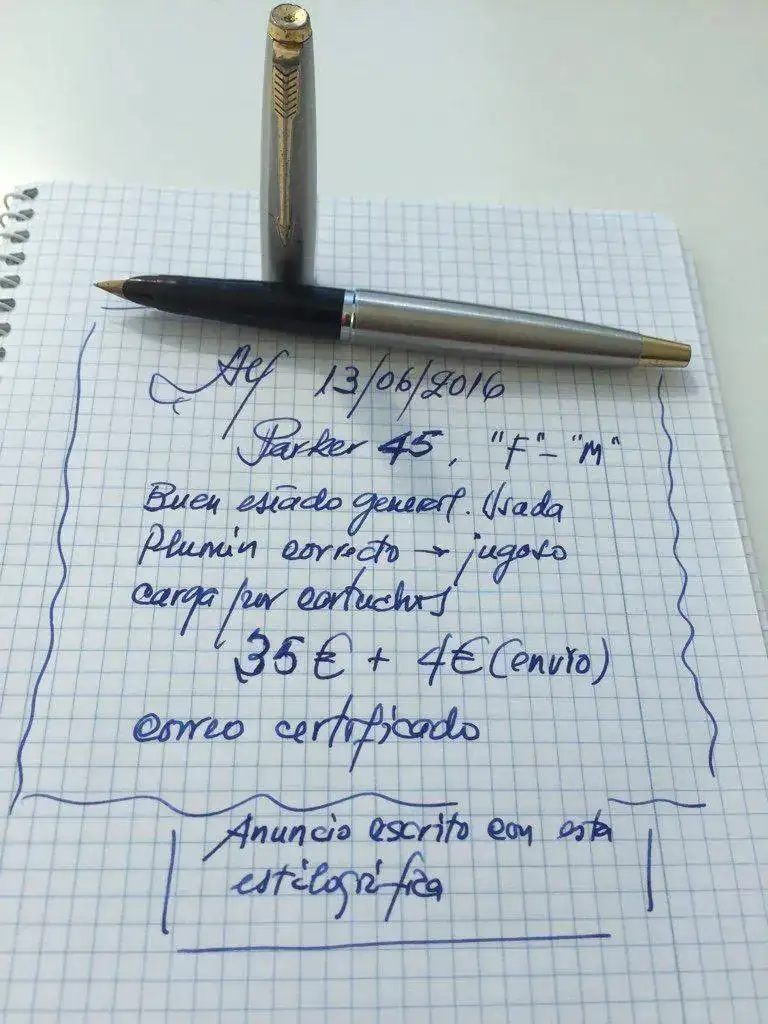 13/06/2016
Parker 45, "F" - "M"
Buen estado general. Usada
Plumin correcto → jugoso
carga por cartuchos
35€ + 4€ (envio)
correo certificado
Anuncio escrito con esta
estilográfica